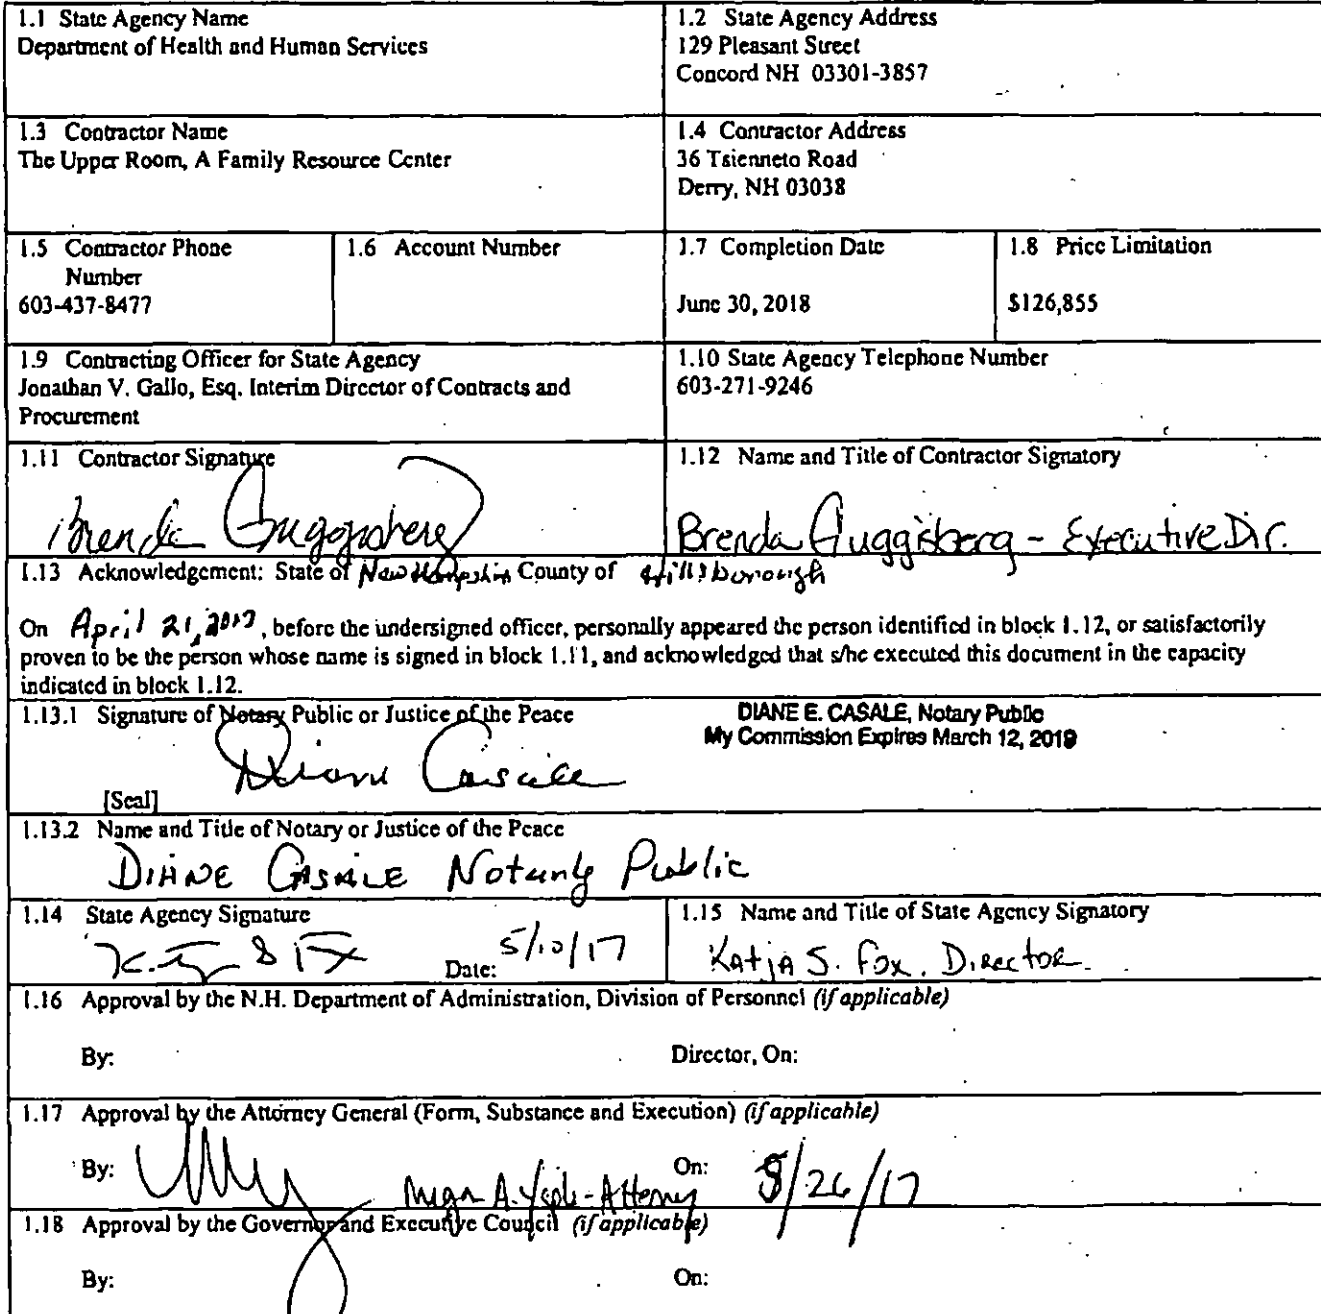 1.1 State Agency Name
Department of Health and Human Services
1.2 State Agency Address
129 Pleasant Street
Concord NH 03301-3857
1.3 Contractor Name
The Upper Room, A Family Resource Center
1.4 Contractor Address
36 Tsienneto Road
Derry, NH 03038
1.5 Contractor Phone
Number
603-437-8477
1.6 Account Number
1.7 Completion Date
June 30, 2018
1.8 Price Limitation
$126,855
1.9 Contracting Officer for State Agency
Jonathan V. Gallo, Esq. Interim Director of Contracts and
Procurement
1.10 State Agency Telephone Number
603-271-9246
1.11 Contractor Signature
Brenda Guggisberg
1.12 Name and Title of Contractor Signatory
Brenda Guggisberg - Executive Dir.
1.13 Acknowledgement: State of New Hampshire County of Hillsborough
On April 21, 2017, before the undersigned officer, personally appeared the person identified in block 1.12, or satisfactorily
proven to be the person whose name is signed in block 1.11, and acknowledged that s/he executed this document in the capacity
indicated in block 1.12.
1.13.1 Signature of Notary Public or Justice of the Peace
DIANE E. CASALE, Notary Public
My Commission Expires March 12, 2019
Diane Casale
[Seal]
1.13.2 Name and Title of Notary or Justice of the Peace
DIANE CASALE Notary Public
1.14 State Agency Signature
Date: 5/10/17
1.15 Name and Title of State Agency Signatory
Katja S. Fox, Director
1.16 Approval by the N.H. Department of Administration, Division of Personnel (if applicable)
By:
Director, On:
1.17 Approval by the Attorney General (Form, Substance and Execution) (if applicable)
By: A. - Attorney
On: 5/26/17
1.18 Approval by the Governor and Executive Council (if applicable)
By:
On: